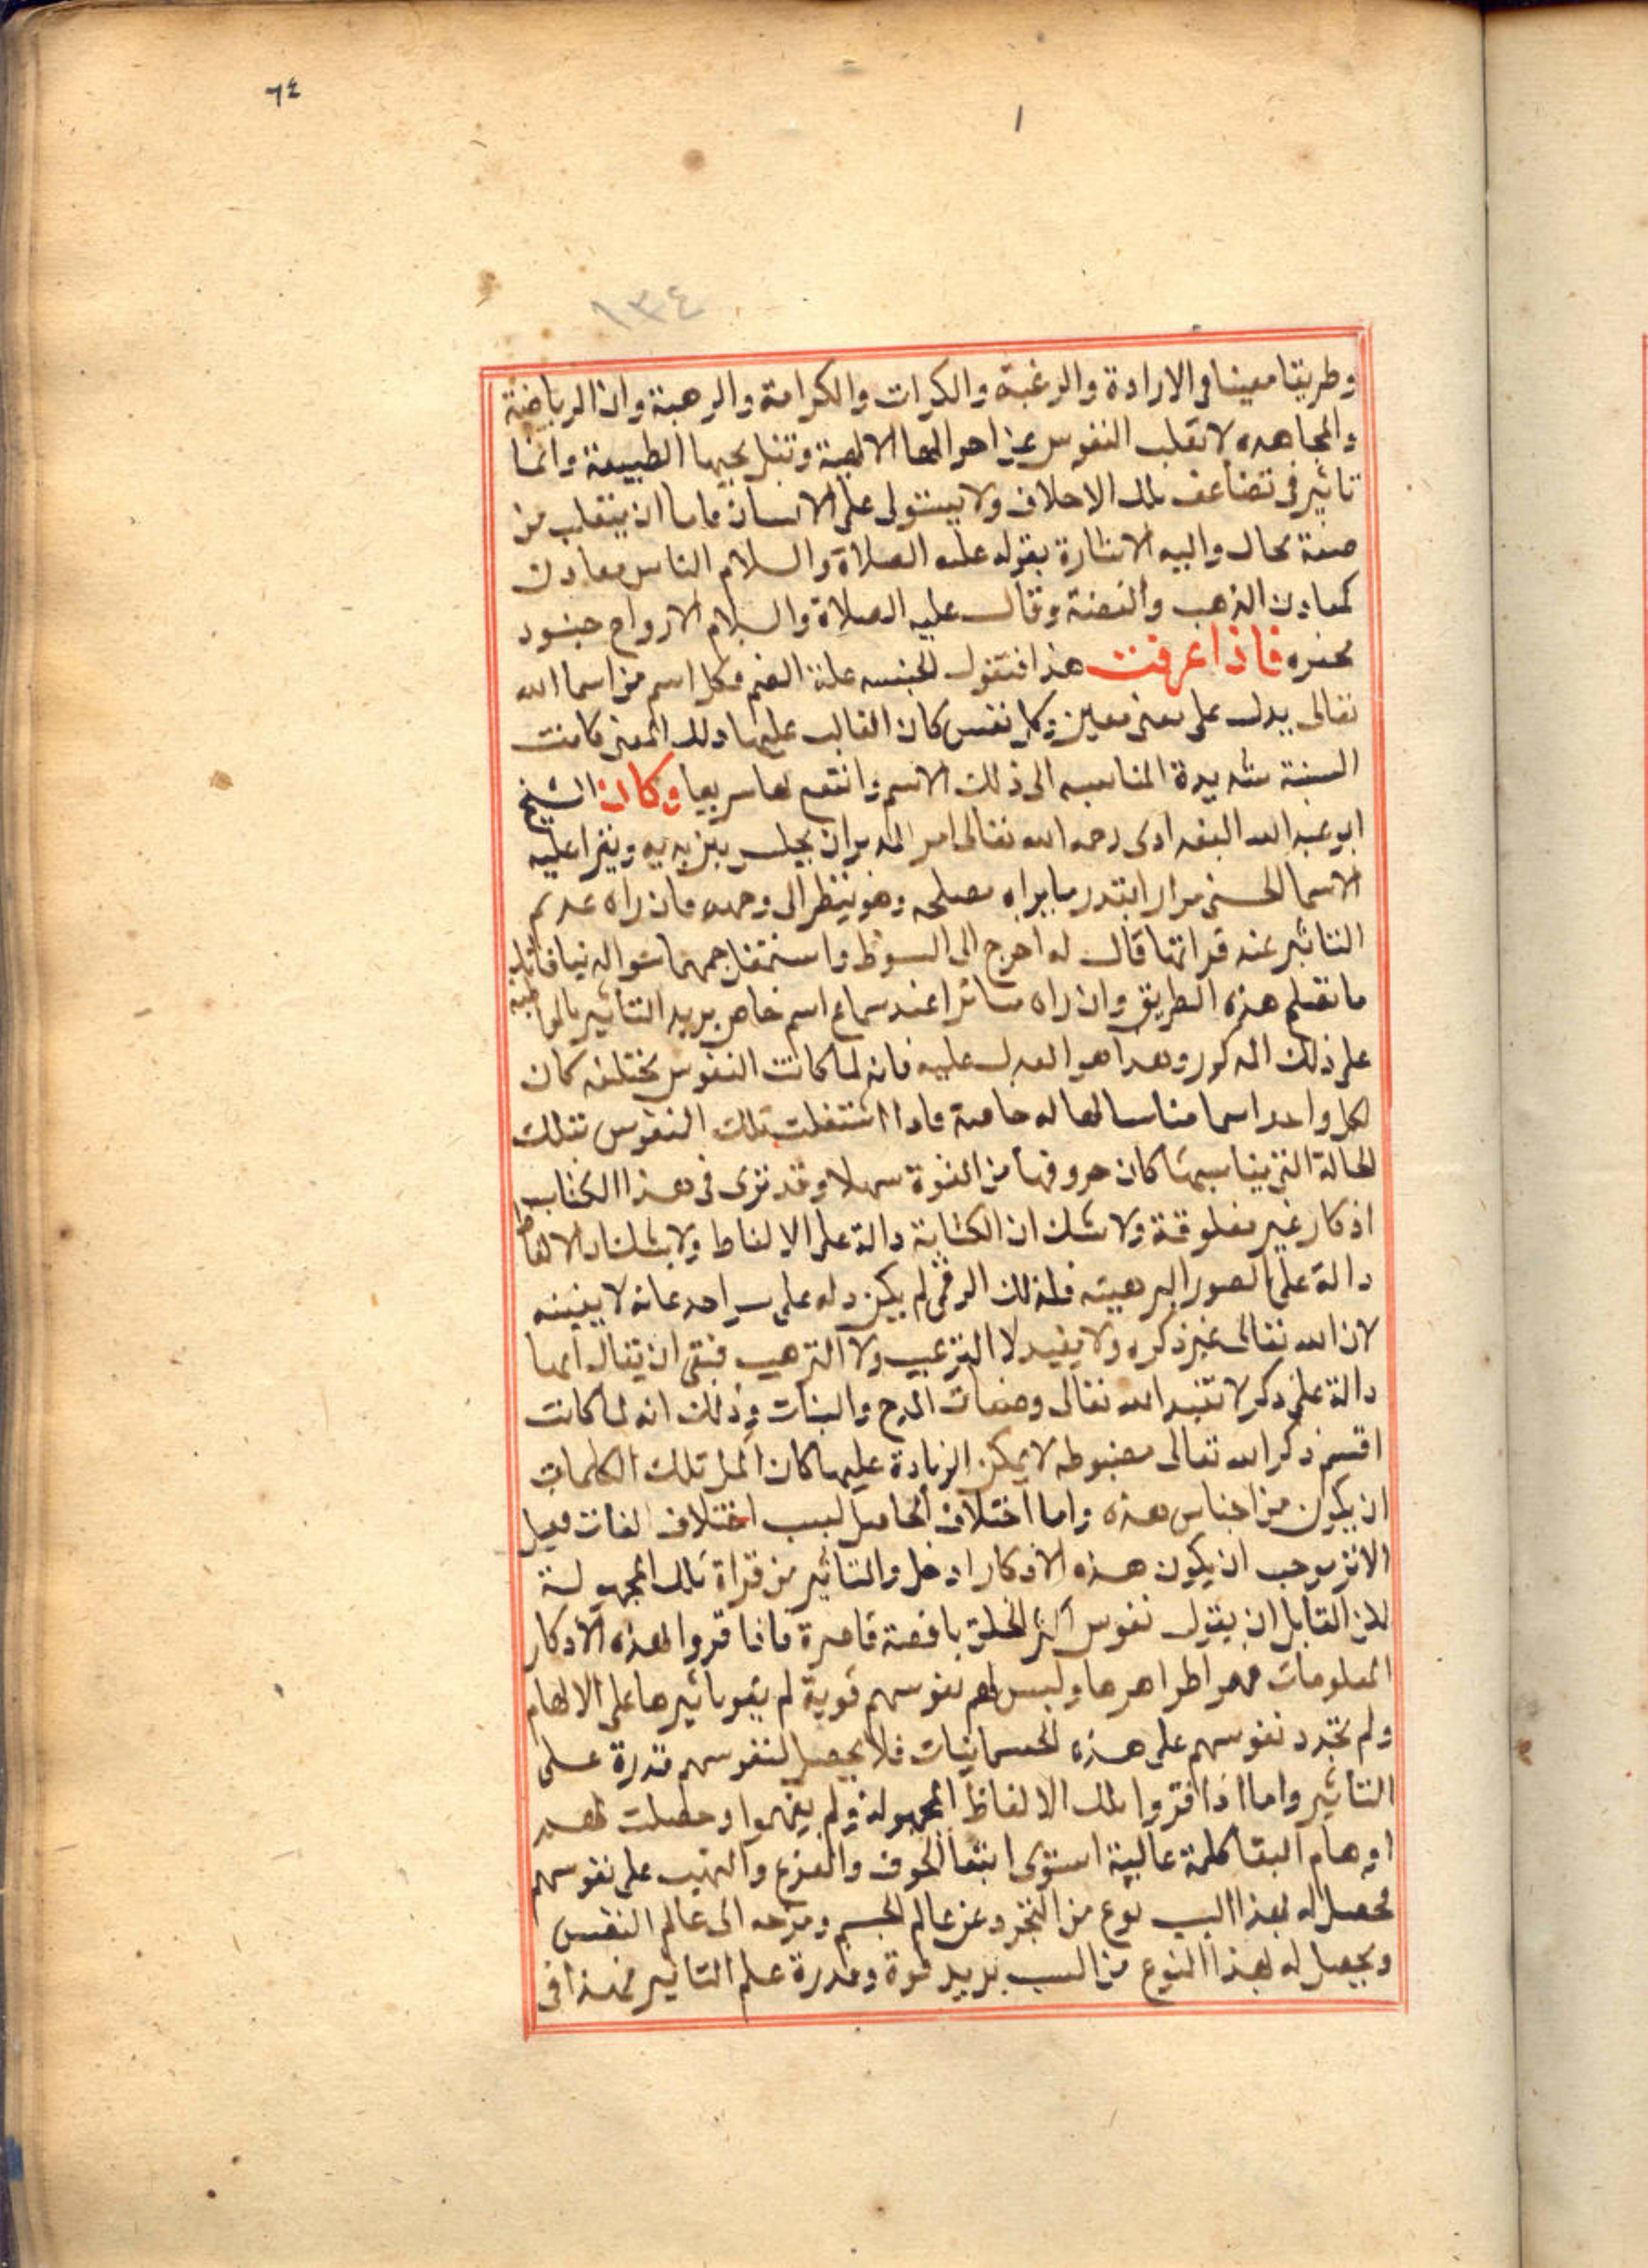 ٦٤
١
١٣٤
وطريقا معينا في الارادة والرغبة والكرات والكرامة والرهبة وان الرياضة
والمجاهده لا تقلب النفوس عن احوالها الالهية وتبدل الطبيعة وانما
تاثير في تضاعف تلك الاخلاق ولا يستولى على الانسان فاما ان ينقلب من
صفة بحال واليه الاشارة بقوله عليه الصلاة والسلام الناس معادن
كمعادن الذهب والفضة وقال عليه الصلاة والسلام الارواح جنود
مجنده فاذا عرفت هذا فنقول الجنسه علة الضم فكل اسم من اسما الله
تعالى يدل على معنى معين وكل نفس كان الغالب عليها ذلك المعنى كانت
السنة شديدة المناسبه الى ذلك الاسم وانتفع بها سريعا وكان الشيخ
ابو عبد الله البغدادى رحمه الله تعالى امر المريد ان يجلس بين يديه ويقرا عليه
الاسما الحسنى مرارا بقدر ما يراه مصلحه وهو ينظر الى وجهه فان راه عديم
التاثير عند قرائتها قال له اخرج الى السوق واشتغل بمهمات الدنيا فانك
ما تصلح هذه الطريق وان راه متاثرا عند سماع اسم خاص يريد التاثير بالمواظبة
على ذلك المذكور وهذا هو العدل عليه فانه لما كانت النفوس مختلفه كان
لكل واحد اسما مناسبا لها له خاصية فاذا اشتغلت تلك النفوس بتلك
الحالة التي يناسبها كان خروفها من القوة سهلا وقد ترى في هذا الكتاب
اذكار غير معلومة ولا شك ان الكتابة دالة على الالفاظ ولا شك ان الالفاظ
دالة على الصور الذهنية فلذلك الرقى لم يكن دله على
لان الله تعالى غير ذكره ولا يفيد لا الترغيب ولا الترهيب فبقى ان يقال انها
دالة على ذكر الله تعالى وصفات المدح والثبات وذلك انه لما كانت
اقسم ذكر الله تعالى مضبوطه لا يمكن الزيادة عليها كان تلك الكلمات
ان يكون من اجناس هذه واما اختلاف الحاصل لسبب اختلاف لغات
الاثر يوجب ان يكون هذه الاذكار ادخل والتاثير من قراة تلك المجهولة
لان القايل ان يقول نفوس اكثر الخلق ناقصة قاصرة فاذا قروا هذه الاذكار
المعلومات ظواهرها وليس لهم نفوسهم قوية لم يقو تاثيرها على الالهام
ولم تتجرد نفوسهم على هذه الجسمانيات فلا يحصل لنفوسهم قدرة على
التاثير واما اذا قروا تلك الالفاظ المجهولة ولم يفهموا وحصلت لهم
اوهام كلمة عالية استوى الخوف والفزع والتهيب على نفوسهم
فحصل له بهذا السبب نوع من التجرد عن عالم الجسم وتوجه الى عالم النفس
ويحصل له بهذا النوع من السبب يزيد قوة وقدرة على التاثير فهذا في